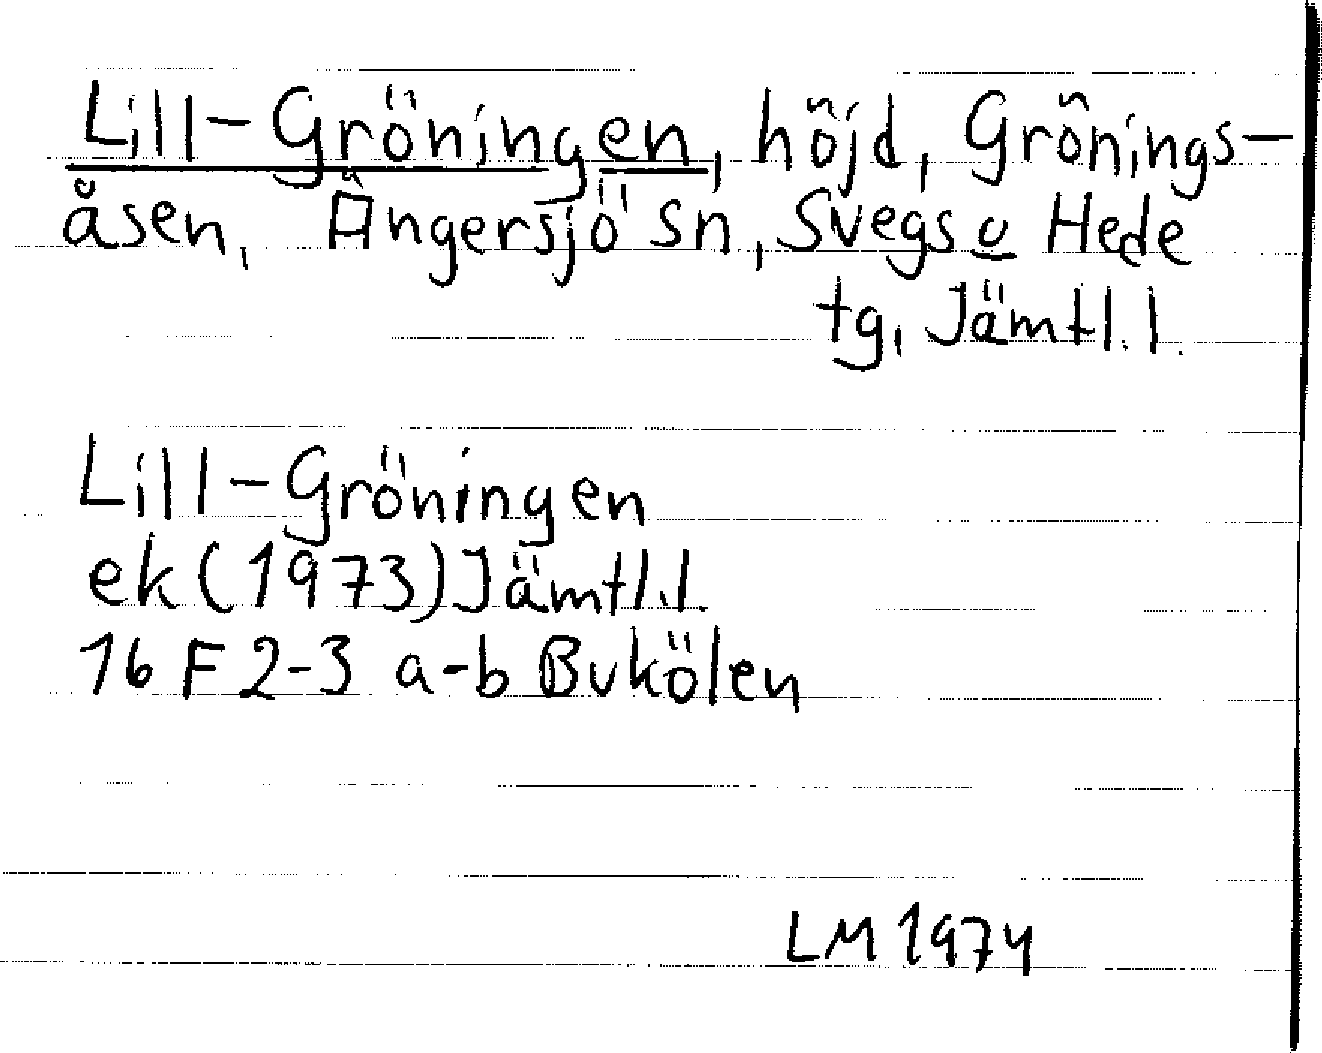 Lill-Gröningen, höjd, Grönings-
åsen, Ängersjö sn, Svegs o Hede
tg, Jämtl.l.
Lill-Gröningen
ek (1973) Jämtl.l.
16 F 2-3 a-b Bukölen
LM 1974